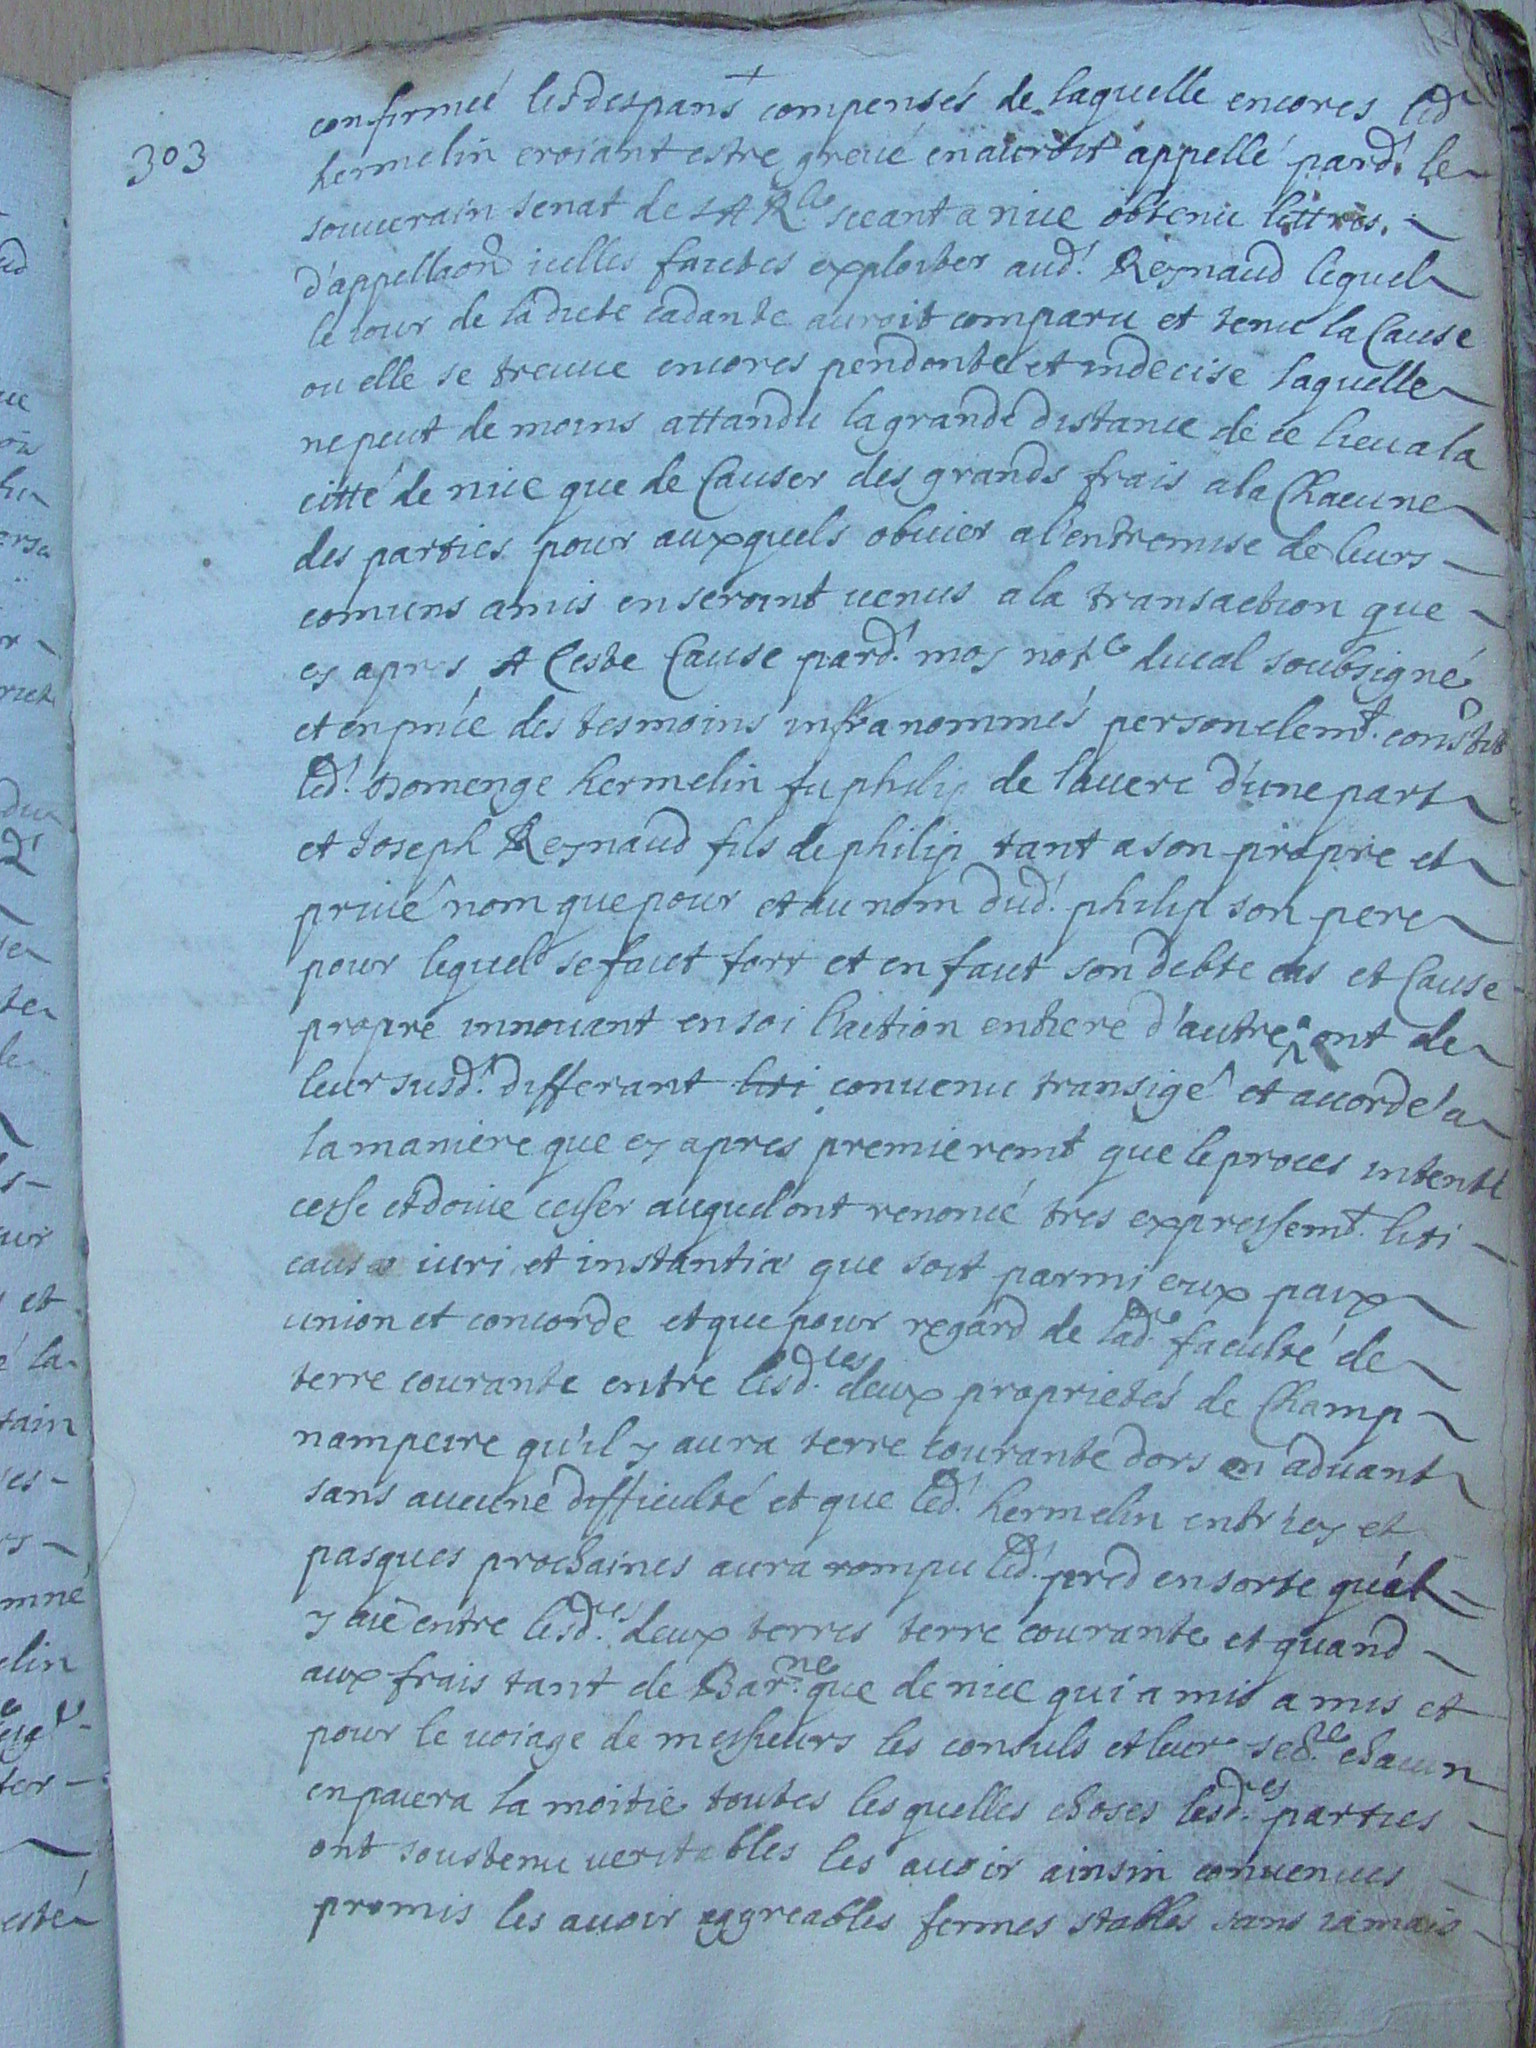 303
confirmeé lesdespans compensés de laquelle encores led
hermelin croiant estre greué enauroit appellé pard.t le
souuerain senat de S A R.lle sceant a nice obtenu lettres.
d'appellaon icelles faictes exploiter aud.t Reynaud lequel
le iour de la dicte cadante auroit comparu et tenu la Cause
ou elle se treuue encores pendante et indecise laquelle
ne peut de moins attandu la grande distance de ce lieu a la
citté de nice que de Causer des grands frais a la Chacune
des parties pour auxquels obuier a l'entremise de leurs
comuns amis en seroint uenus a la transaction que
cy apres A Ceste Cause pard.t moy not.e ducal soubsigné
et en pnce des tesmoins infranommés personelemt. constit
led.t Domenge hermelin fu philip de lauere d'une part
et Joseph Reynaud fils de philip tant a son propre et
priué nom que pour et au nom dud.t philip son pere
pour lequel se faict fort et en faict son debte cas et Cause
propre innouant en soi l'action entiere d'autre ont de
leur susd.t differant liti conuenu transigé et accordé a
la maniere que cy apres premieremt que le proces intenté
cesse et doiue cesser auquel ont renoncé tres expressemt. liti
causæ iuri et instantiæ que soit parmi eux paix
union et concorde et que pour regard de lad.e faculté de
terre courante entre lesd.tes deux proprietés de Champ
nampeire qu'il y aura terre courante dors en aduant
sans aucune difficulté et que led.t hermelin entr'icy et
pasques prochaines aura rompu led.t pred en sorte qu'il
y aie entre lesd.tes deux terres terre courante et quand
aux frais tant de Bar.ne que de nice qui a mis a mis et
pour le uoiage de messieurs les consuls et leur sec.re chacun
en paiera la moitie toutes lesquelles choses lesd.tes parties
ont soustenu ueritables les auoir ainsin conuenues
promis les auoir aggreables fermes stables sans iamais